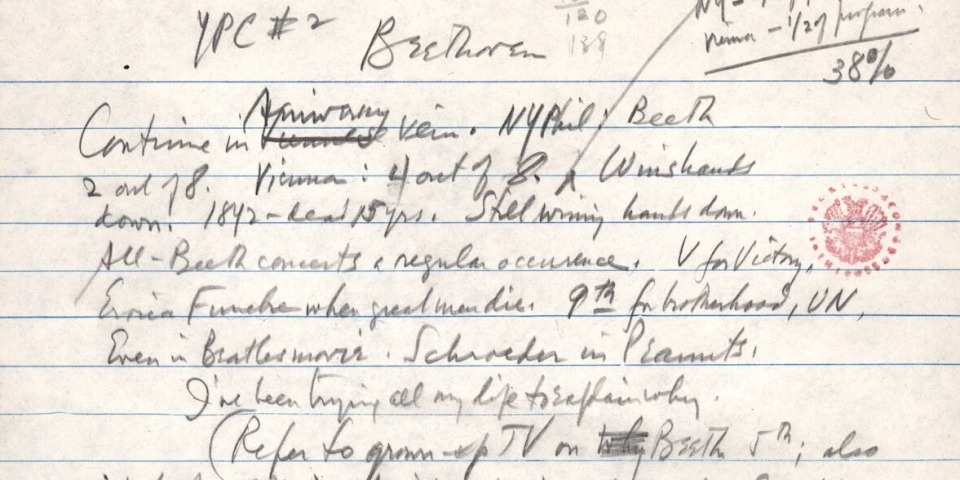 YPC #2
Beethoven
120
NY -
- 1/2 of program.
38%
Anniversary
Continue in vein. NYPhil: Beeth
2 out of 8. Vienna: 4 out of 8. Wins hands
down! 1842 - dead 15 yrs. Still winning hands down.
All-Beeth concerts a regular occurence. V for Victory,
Eroica Funebre when great men die. 9th for brotherhood, UN,
Even in Beatles movie. Schroeder in Peanuts.
I've been trying all my life to explain why.
(Refer to grown-up TV on Beeth 5th; also